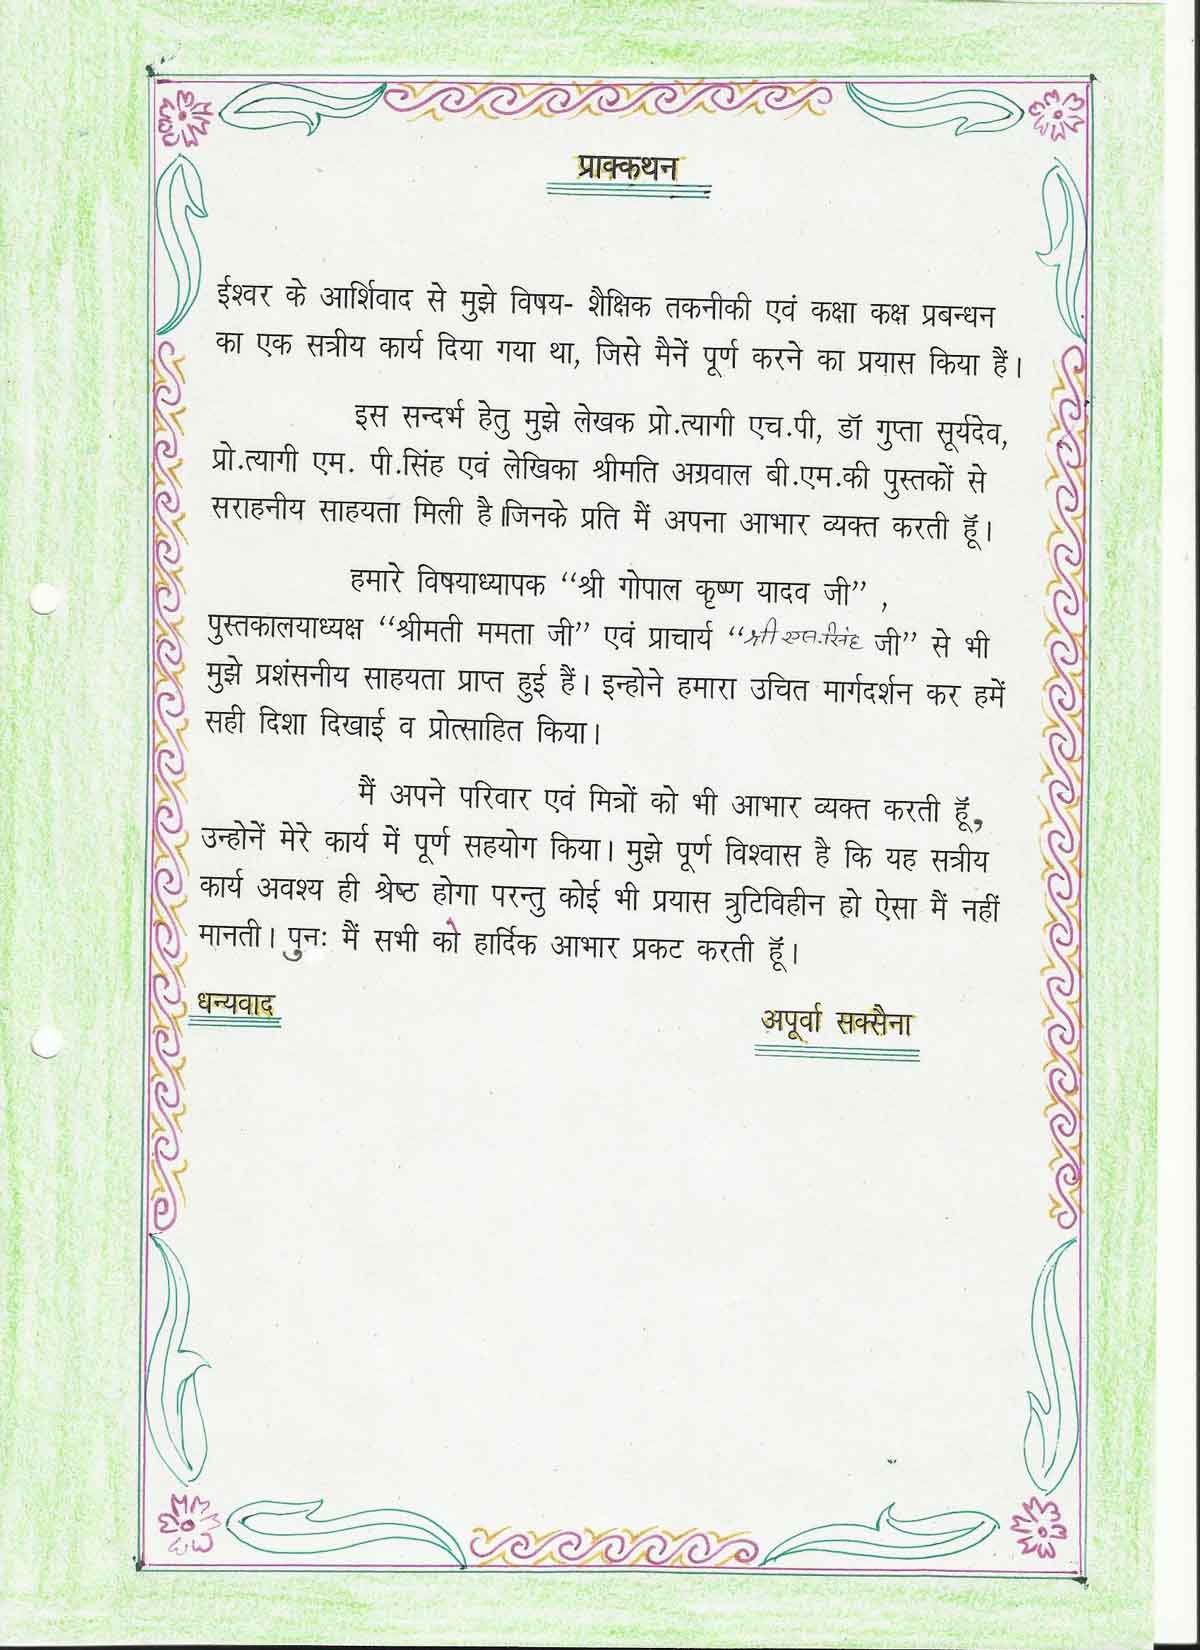 प्राक्कथन
ईश्वर के आर्शिवाद से मुझे विषय- शैक्षिक तकनीकी एवं कक्षा कक्ष प्रबन्धन
का एक सत्रीय कार्य दिया गया था, जिसे मैनें पूर्ण करने का प्रयास किया हैं।
इस सन्दर्भ हेतु मुझे लेखक प्रो.त्यागी एच.पी, डॉ गुप्ता सूर्यदेव,
प्रो.त्यागी एम. पी.सिंह एवं लेखिका श्रीमति अग्रवाल बी.एम.की पुस्तकों से
सराहनीय साहयता मिली है।जिनके प्रति मैं अपना आभार व्यक्त करती हॅू।
हमारे विषयाध्यापक “श्री गोपाल कृष्ण यादव जी” ,
पुस्तकालयाध्यक्ष “श्रीमती ममता जी” एवं प्राचार्य “श्री एल.सिंह जी” से भी
मुझे प्रशंसनीय साहयता प्राप्त हुई हैं। इन्होने हमारा उचित मार्गदर्शन कर हमें
सही दिशा दिखाई व प्रोत्साहित किया।
मैं अपने परिवार एवं मित्रों को भी आभार व्यक्त करती हॅू,
उन्होनें मेरे कार्य में पूर्ण सहयोग किया। मुझे पूर्ण विश्वास है कि यह सत्रीय
कार्य अवश्य ही श्रेष्ठ होगा परन्तु कोई भी प्रयास त्रुटिविहीन हो ऐसा मैं नहीं
मानती। पुनः मैं सभी को हार्दिक आभार प्रकट करती हॅू।
धन्यवाद
अपूर्वा सक्सैना